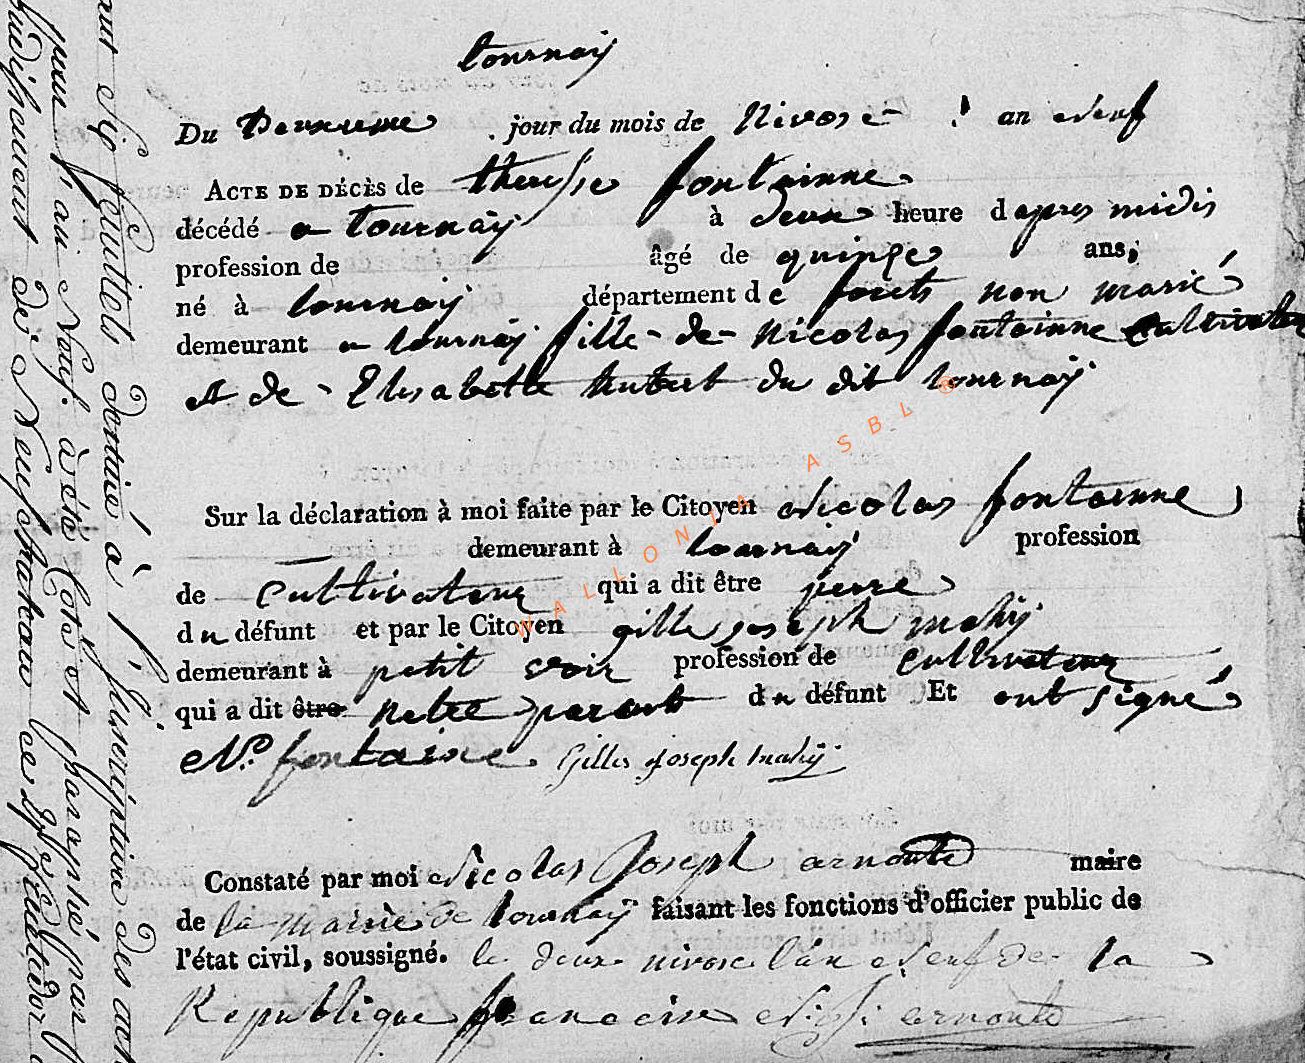 tournay
Du Deuxieme jour du mois de Nivose an neuf
ACTE DE DÉCÈS de theresse fontainne
décédé a tournay à deux heure dapres midis
profession de âgé de quinze ans,
né à tournay département de forets non marié
demeurant a tournay fille de Nicolas fontainne Cultivateur
et de Elisabette hubert du dit tournay
Sur la déclaration à moi faite par le Citoyen Nicolas fontainne
demeurant à tournay profession
de Cultivateur qui a dit être perre
du défunt et par le Citoyen gille joseph mahy
demeurant à petit voir profession de Cultivateur
qui a dit être netre parent du défunt Et ont signé
N. fontaine Gilles joseph mahy
Constaté par moi Nicolas Joseph arnould maire
de la mairie de tournay faisant les fonctions d'officier public de
l'état civil, soussigné. le deux nivose l'an neuf de la
Republique francoise N. J. arnould
WALLONIA ASBL ®
six feuillets destiné à l'inscription des
pour l'an Neuf. à été Coté et paraphé par
de Neufchateau ce